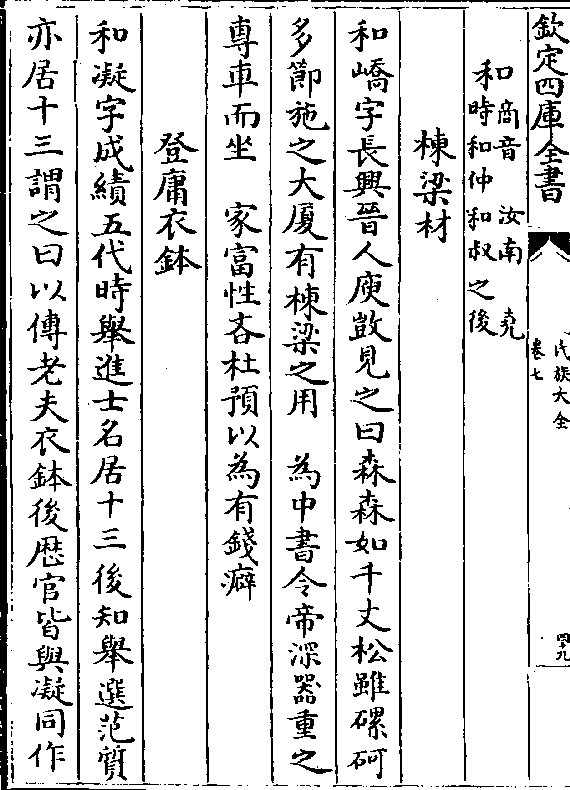 欽定四庫全書
氏族大全
卷七
四十九
和 商音 汝南 堯時和仲和叔之後
棟梁材
和嶠字長興晉人庾敳見之曰森森如千丈松雖磥砢
多節施之大厦有棟梁之用 為中書令帝深器重之
專車而坐 家富性吝杜預以為有錢癖
登庸衣鉢
和凝字成績五代時舉進士名居十三後知舉選范質
亦居十三謂之曰以傳老夫衣鉢後歴官皆與凝同作